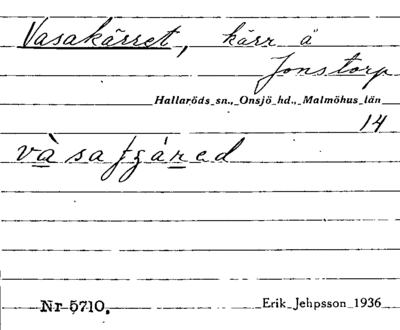 Vasakärret, kärr å
Jonstorp
Hallaröds sn., Onsjö hd., Malmöhus län
14
Nr 5710.
Erik Jehpsson 1936